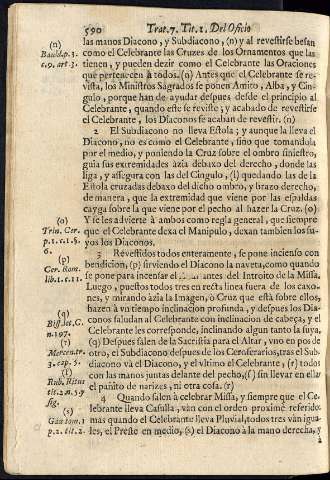 590 Trat. 7. Tit. 2. Del Oficio
las manos Diacono, y Subdiacono, (n) y al revestirse besan
como el Celebrante las Cruzes de los Ornamentos que las
tienen, y pueden dezir como el Celebrante las Oraciones
que pertenecen à todos. (n) Antes que el Celebrante se re-
vista, los Ministros Sagrados se ponen Amito, Alba, y Cin-
gulo, porque han de ayudar despues desde el principio al
Celebrante, quando este se reviste; y acabado de revestirse
el Celebrante, los Diaconos se acaban de revestir. (n)
2 El Subdiacono no lleva Estola; y aunque la lleva el
Diacono, no es como el Celebrante, sino que tomandola
por el medio, y poniendo la Cruz sobre el ombro siniestro,
guia sus extremidades àzia debaxo del derecho, donde las
liga, y assegura con las del Cingulo, (l) quedando las de la
Estola cruzadas debaxo del dicho ombro, y brazo derecho,
de manera, que la extremidad que viene por las espaldas
cayga sobre la que viene por el pecho al hazer la Cruz. (o)
Y se les advierte à ambos como regla general, que siempre
que el Celebrante dexa el Manipulo, dexan tambien los su-
yos los Diaconos.
3 Revestidos todos enteramente, se pone incienso con
bendicion, (p) sirviendo el Diacono la naveta, como quando
se pone para incensar el antes del Introito de la Missa,
Luego, puestos todos tres en recta linea fuera de los caxo-
nes, y mirando àzia la Imagen, ò Cruz que està sobre ellos,
hazen à un tiempo inclinacion profunda, y despues los Dia-
conos saludan al Celebrante con inclinacion de cabeça, y el
Celebrante les corresponde, inclinando algun tanto la suya,
(q) Despues salen de la Sacristia para el Altar, vno en pos de
otro, el Subdiacono despues de los Ceroferarios, tras el Sub-
diacono và el Diacono, y el vltimo el Celebrante, (r) todos
con las manos juntas delante del pecho, (s) sin llevar en ellas
el pañito de narizes, ni otra cosa. (r)
4 Quando salen à celebrar Missa, y siempre que el Ce-
lebrante lleva Casulla, vàn con el orden proximè referido:
mas quando el Celebrante lleva Pluvial, todos tres vàn igua-
les, el Preste en medio, (s) el Diacono à la mano derecha, y
(n)
Bauld. p. 3.
c. 9. art. 3.
(o)
Trim. Cer.
p. 1. c. 1. §.
6.
(p)
Cer. Rom.
lib. 1. c. 11.
(q)
Biss. let. C.
n. 197.
(r)
Mercen. tr.
3. cap. 5.
Rub. Ritus
tit. 2. n. 5.
(s)
p. 2. tit. 2.